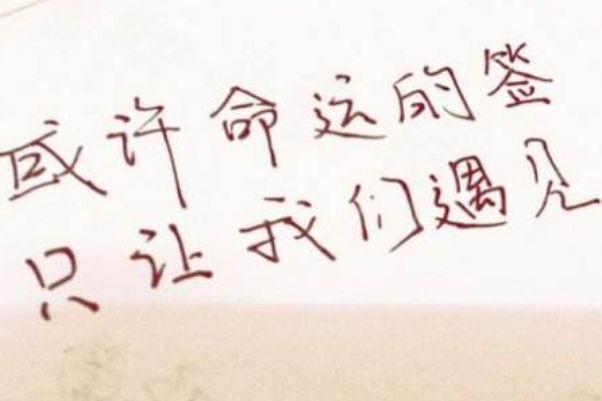 或许命运的签
只让我们遇见